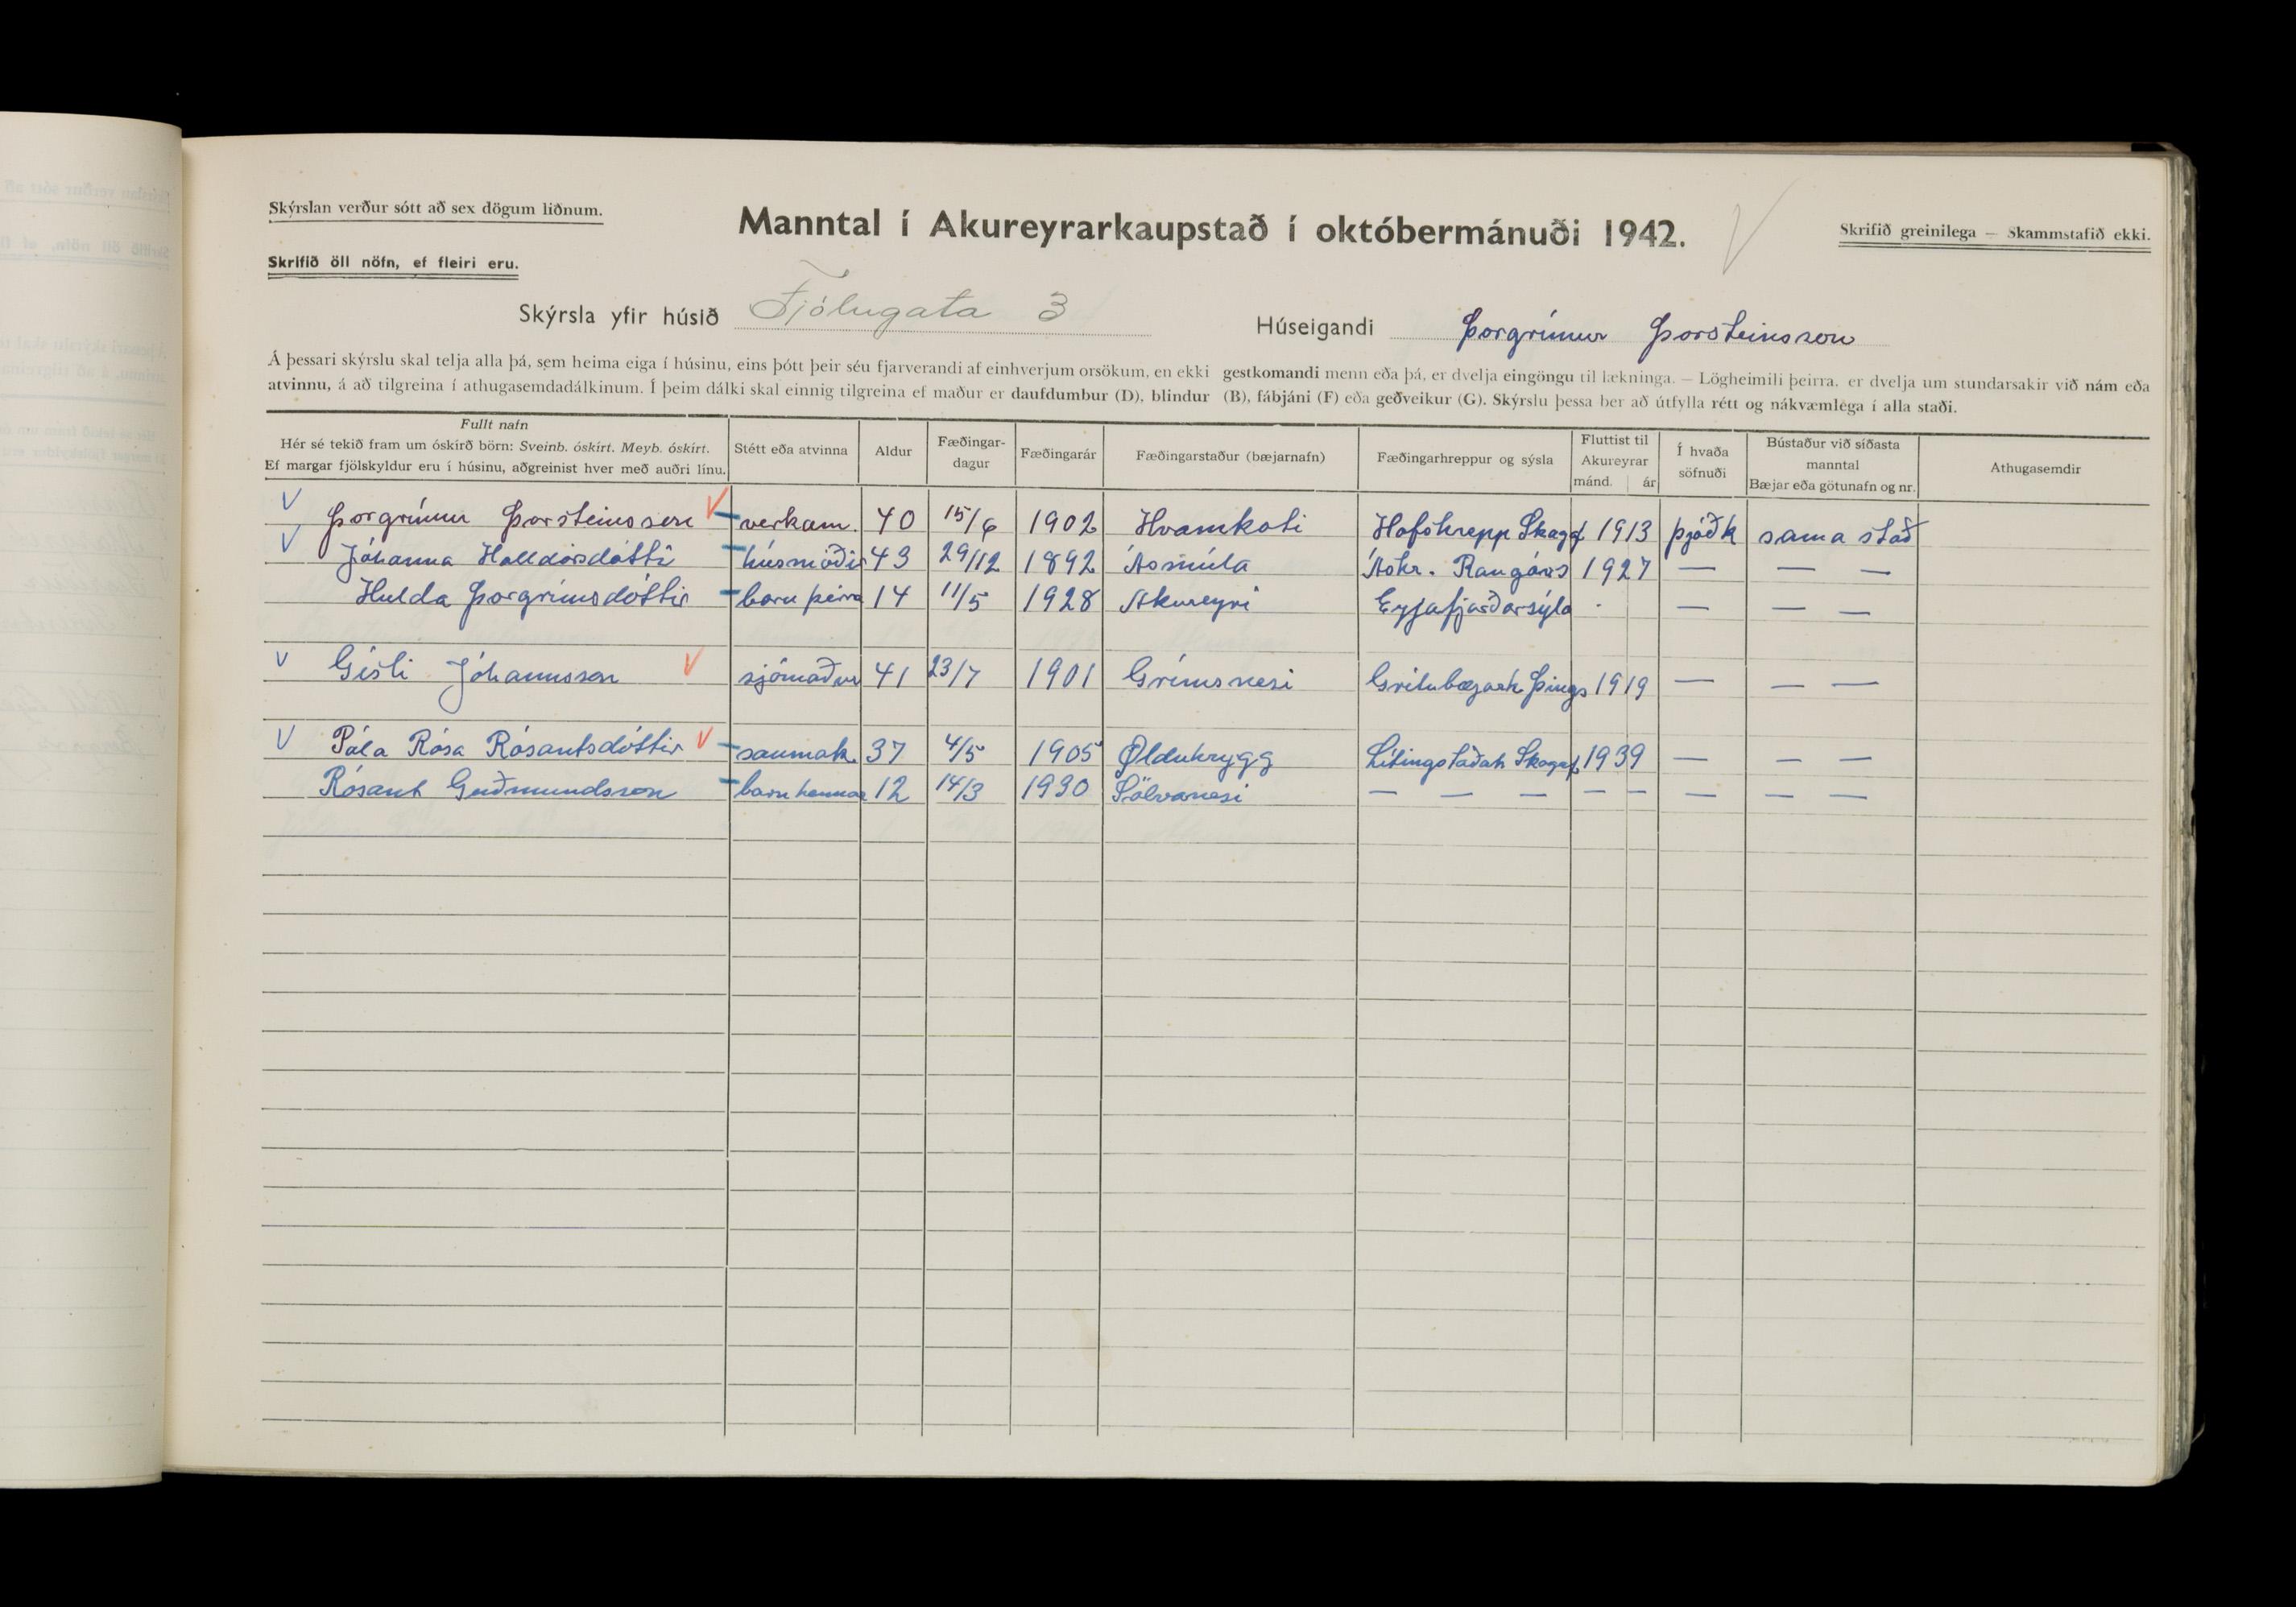 Skýrslan verður sótt að sex dögum liðnum.
Skrifið öll nöfn, ef fleiri eru.
Manntal í Akureyrarkaupstað í októbermánuði 1942.
Skrifið greinilega — Skammstafið ekki.
Skýrsla yfir húsið Fjólugata 3 Húseigandi Þorgrímur Þorsteinsson
Á þessari skýrslu skal telja alla þá, sem heima eiga í húsinu, eins þótt þeir séu fjarverandi af einhverjum orsökum, en ekki gestkomandi menn eða þá, er dvelja eingöngu til lækninga. — Lögheimili þeirra, er dvelja um stundarsakir við nám eða
atvinnu, á að tilgreina í athugasemdadálkinum. Í þeim dálki skal einnig tilgreina ef maður er daufdumbur (D), blindur (B), fábjáni (F) eða geðveikur (G). Skýrslu þessa ber að útfylla rétt og nákvæmlega í alla staði.
Fullt nafn
Hér sé tekið fram um óskírð börn: Sveinb. óskírt. Meyb. óskírt.
Ef margar fjölskyldur eru í húsinu, aðgreinist hver með auðri línu.
Stétt eða atvinna
Aldur
Fæðingar-
dagur
Fæðingarár
Fæðingarstaður (bæjarnafn)
Fæðingarhreppur og sýsla
Fluttist til
Akureyrar
mánd. ár
Í hvaða
söfnuði
Bústaður við síðasta
manntal
Bæjar eða götunafn og nr.
Athugasemdir
V Þorgrímur Þorsteinsson V verkam. 40 15/6 1902 Hvamkoti Hofshrepp Skagf 1913 þjóðk sama stað
V Jóhanna Halldórsdóttir húsmóðir 43 29/12 1892 Ásmúla Áshr. Rangárs 1927 — — —
Hulda Þorgrímsdóttir barn þeirra 14 11/5 1928 Akureyri Eyjafjarðarsýla · — — —
V Gísli Jóhannsson V sjómaður 41 23/7 1901 Grímsnesi Grítubægarh Þings 1919 — — —
V Póla Rósa Rósantsdóttir V saumak. 37 4/5 1905 Ölduhrygg Lítingstaðah Skagaf. 1939 — — —
Rósant Guðmundsson barn hennar 12 14/3 1930 Sölvanesi — — — — — — — —